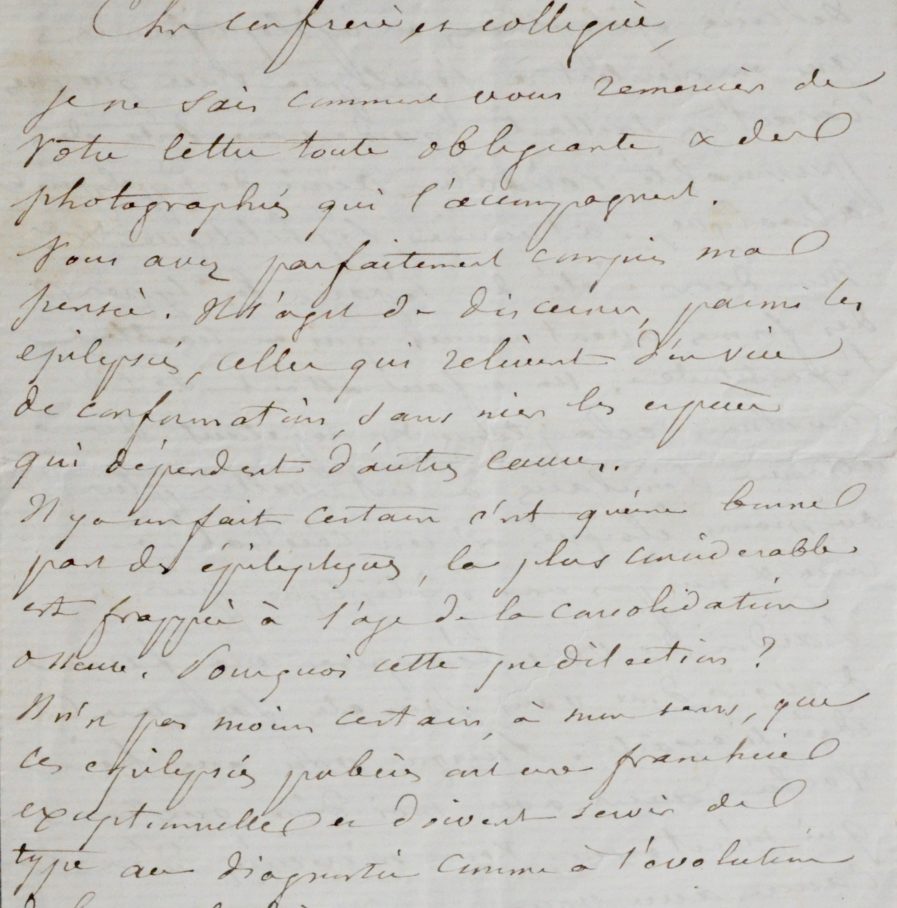 Cher confrère et collègue,
Je ne sais comment vous remercier de
votre lettre toute obligeante & des
photographies qui l'accompagnent.
Vous avez parfaitement compris ma
pensée. Il s'agit de discerner, parmi les
épilepsies, celles qui relèvent d'un vice
de conformation, sans nier les espèces
qui dépendent d'autres causes.
Il y a un fait certain c'est qu'une bonne
part des épileptiques, la plus considérable
est frappée à l'âge de la consolidation
osseuse. Pourquoi cette prédilection ?
Il n'est pas moins certain, à mon sens, que
ces épilepsies pubères ont une franchise
exceptionnelle et doivent servir de
type au diagnostic comme à l'évolution